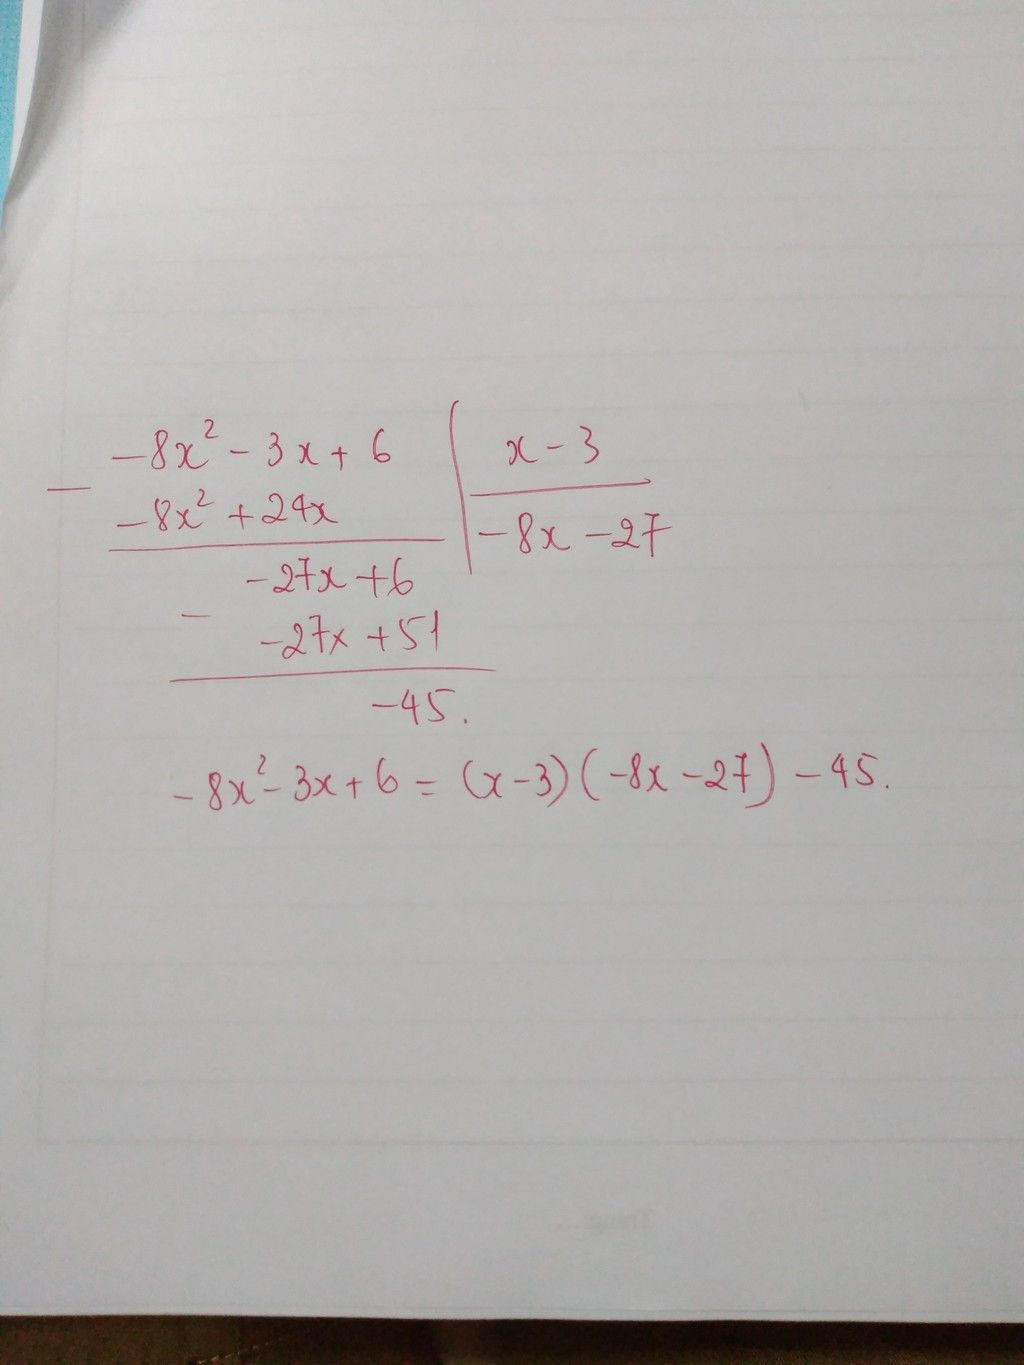 -8x² - 3x + 6 | x - 3
- -8x² + 24x | -8x - 27
-27x + 6
- -27x + 51
-45.
-8x² - 3x + 6 = (x - 3)(-8x - 27) - 45.